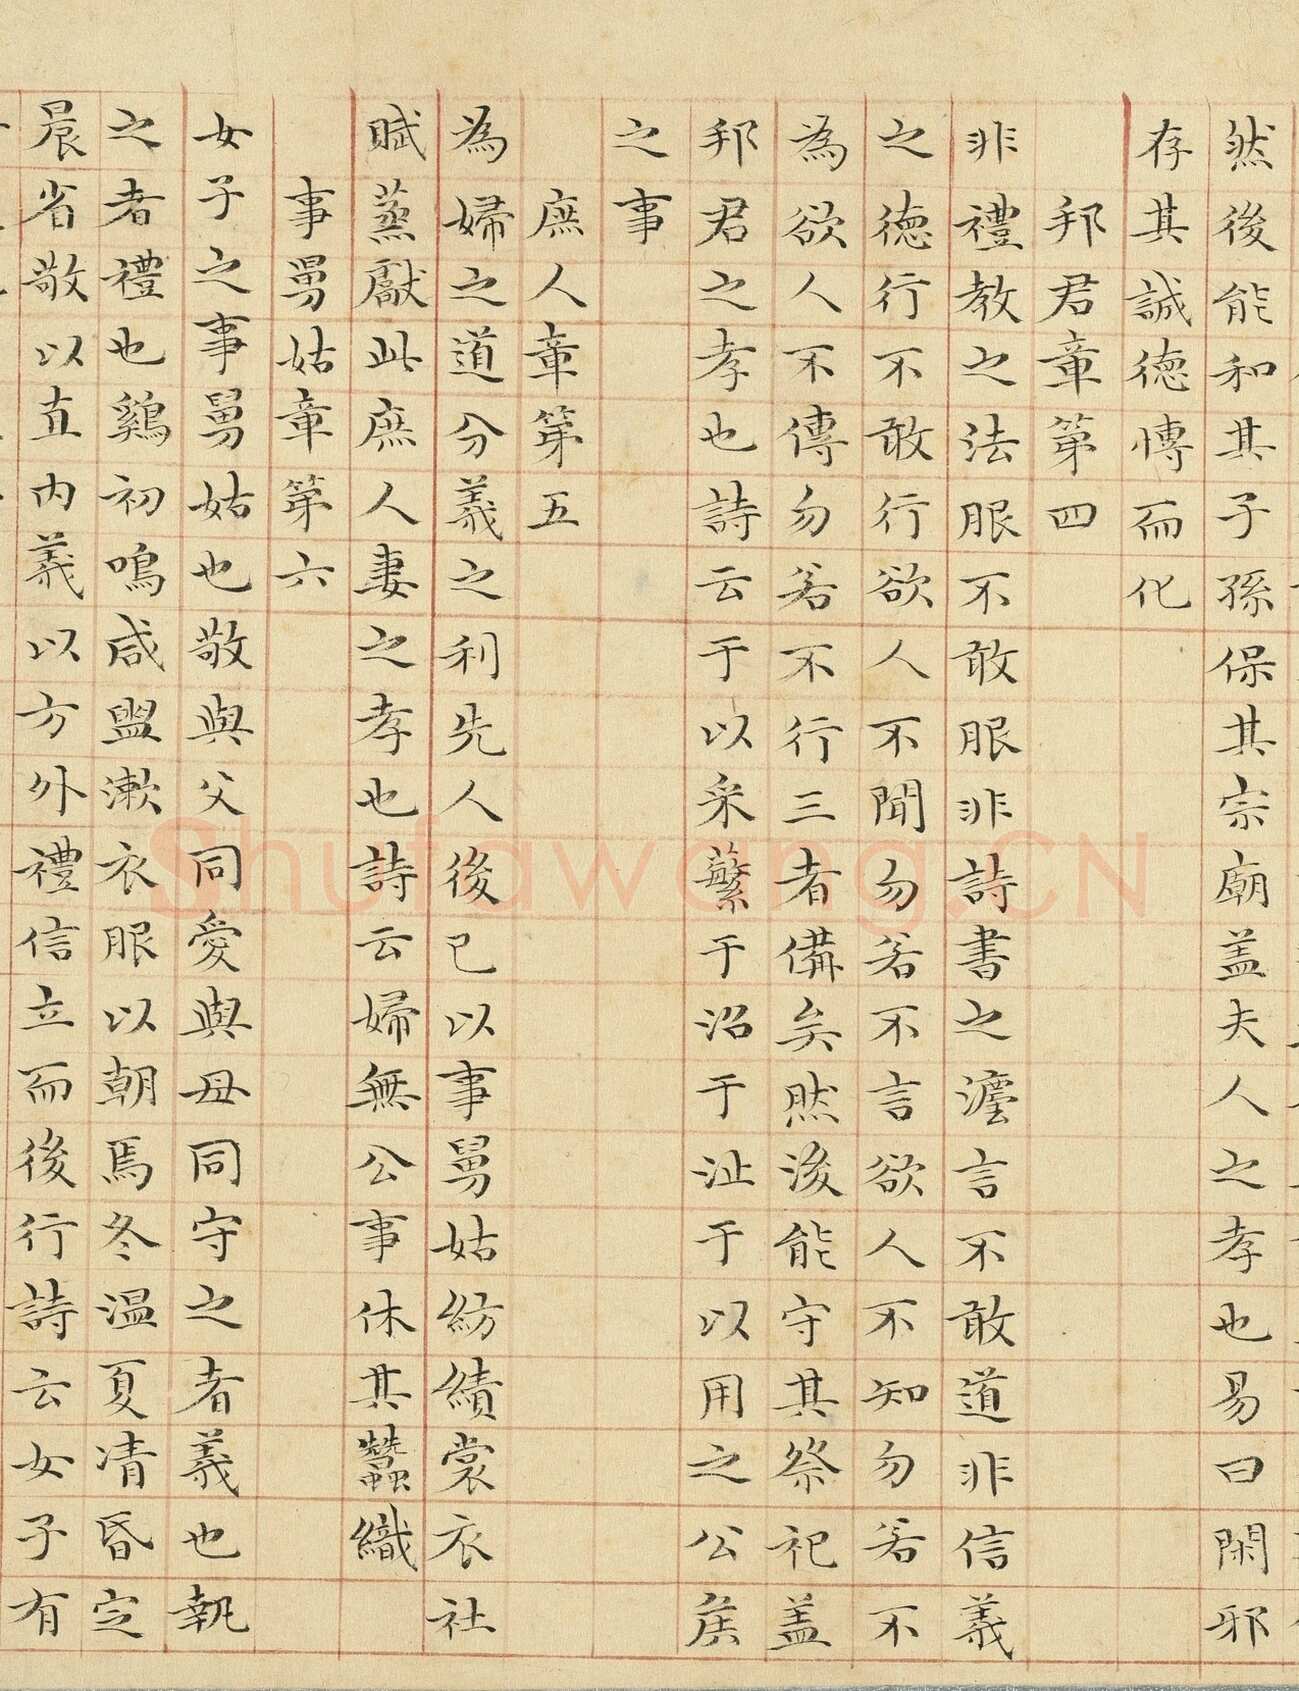 然後能和其子孫保其宗廟盖夫人之孝也易曰閑邪
存其誠德愽而化
邦君章第四
非禮教之法服不敢服非詩書之灋言不敢道非信義
之德行不敢行欲人不聞勿若不言欲人不知勿若不
為欲人不傳勿若不行三者備矣然後能守其祭祀盖
邦君之孝也詩云于以采蘩于沼于沚于以用之公侯
之事
庶人章第五
為婦之道分義之利先人後己以事舅姑紡績裳衣社
賦蒸獻此庶人妻之孝也詩云婦無公事休其蠶織
事舅姑章第六
女子之事舅姑也敬與父同愛與母同守之者義也執
之者禮也鷄初鳴咸盥漱衣服以朝焉冬温夏凊昏定
晨省敬以直内義以方外禮信立而後行詩云女子有
Shufawang.CN